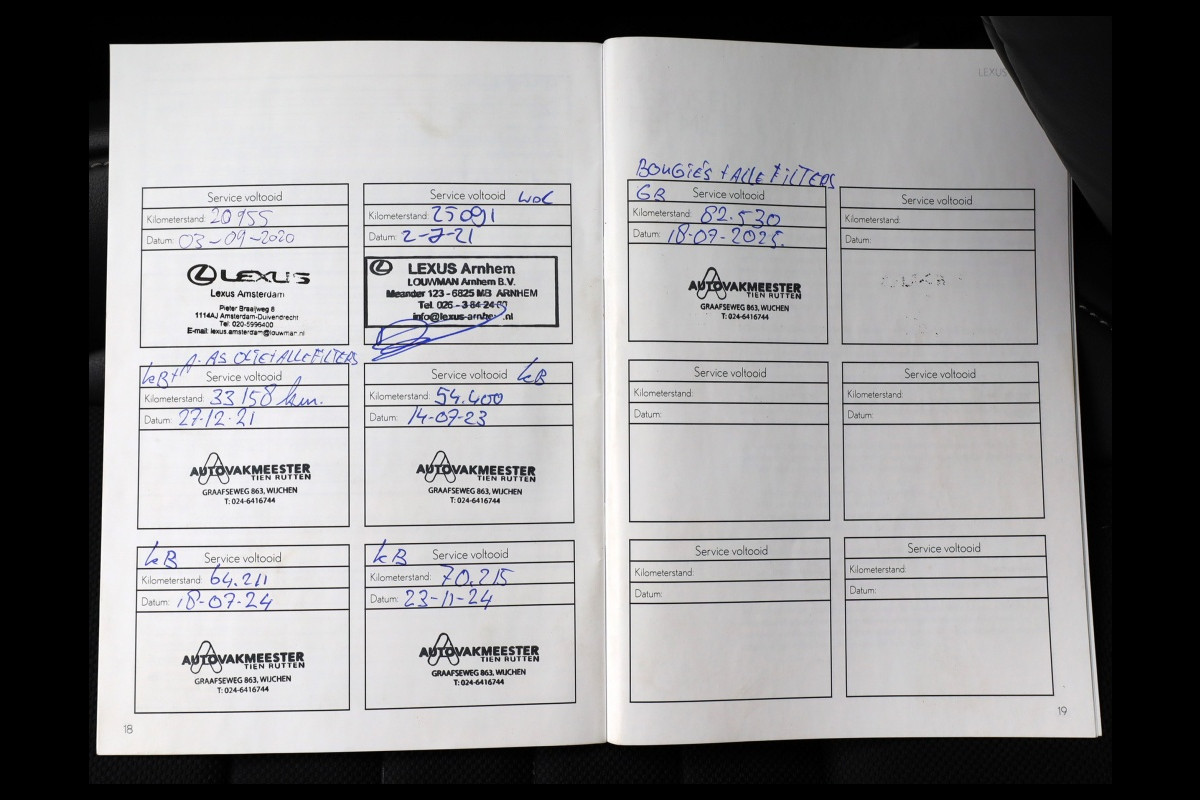 LEXUS
Service voltooid
Kilometerstand: 20955
Datum: 03-09-2020
LEXUS
Lexus Amsterdam
Pieter Braaijweg 8
1114AJ Amsterdam-Duivendrecht
Tel: 020-5996400
E-mail: lexus.amsterdam@louwman.nl
Service voltooid
Kilometerstand: 25091
Datum: 2-7-21
LEXUS Arnhem
LOUWMAN Arnhem B.V.
Meander 123 - 6825 MB ARNHEM
Tel. 026 - 3 84 24
info@lexus-arnhem.nl
A.AS OLIE + ALLE FILTERS
kB+ Service voltooid
Kilometerstand: 33158 km.
Datum: 27-12-21
AUTOVAKMEESTER
TIEN RUTTEN
GRAAFSEWEG 863, WIJCHEN
T: 024-6416744
Service voltooid kB
Kilometerstand: 54.400
Datum: 14-07-23
AUTOVAKMEESTER
TIEN RUTTEN
GRAAFSEWEG 863, WIJCHEN
T: 024-6416744
kB Service voltooid
Kilometerstand: 64.211
Datum: 18-07-24
AUTOVAKMEESTER
TIEN RUTTEN
GRAAFSEWEG 863, WIJCHEN
T: 024-6416744
kB Service voltooid
Kilometerstand: 70.215
Datum: 23-11-24
AUTOVAKMEESTER
TIEN RUTTEN
GRAAFSEWEG 863, WIJCHEN
T: 024-6416744
18
BOUGIE'S + ALLE FILTERS
GB Service voltooid
Kilometerstand: 82.530
Datum: 18-07-2025.
AUTOVAKMEESTER
TIEN RUTTEN
GRAAFSEWEG 863, WIJCHEN
T: 024-6416744
Service voltooid
Kilometerstand:
Datum:
Service voltooid
Kilometerstand:
Datum:
Service voltooid
Kilometerstand:
Datum:
Service voltooid
Kilometerstand:
Datum:
Service voltooid
Kilometerstand:
Datum:
19